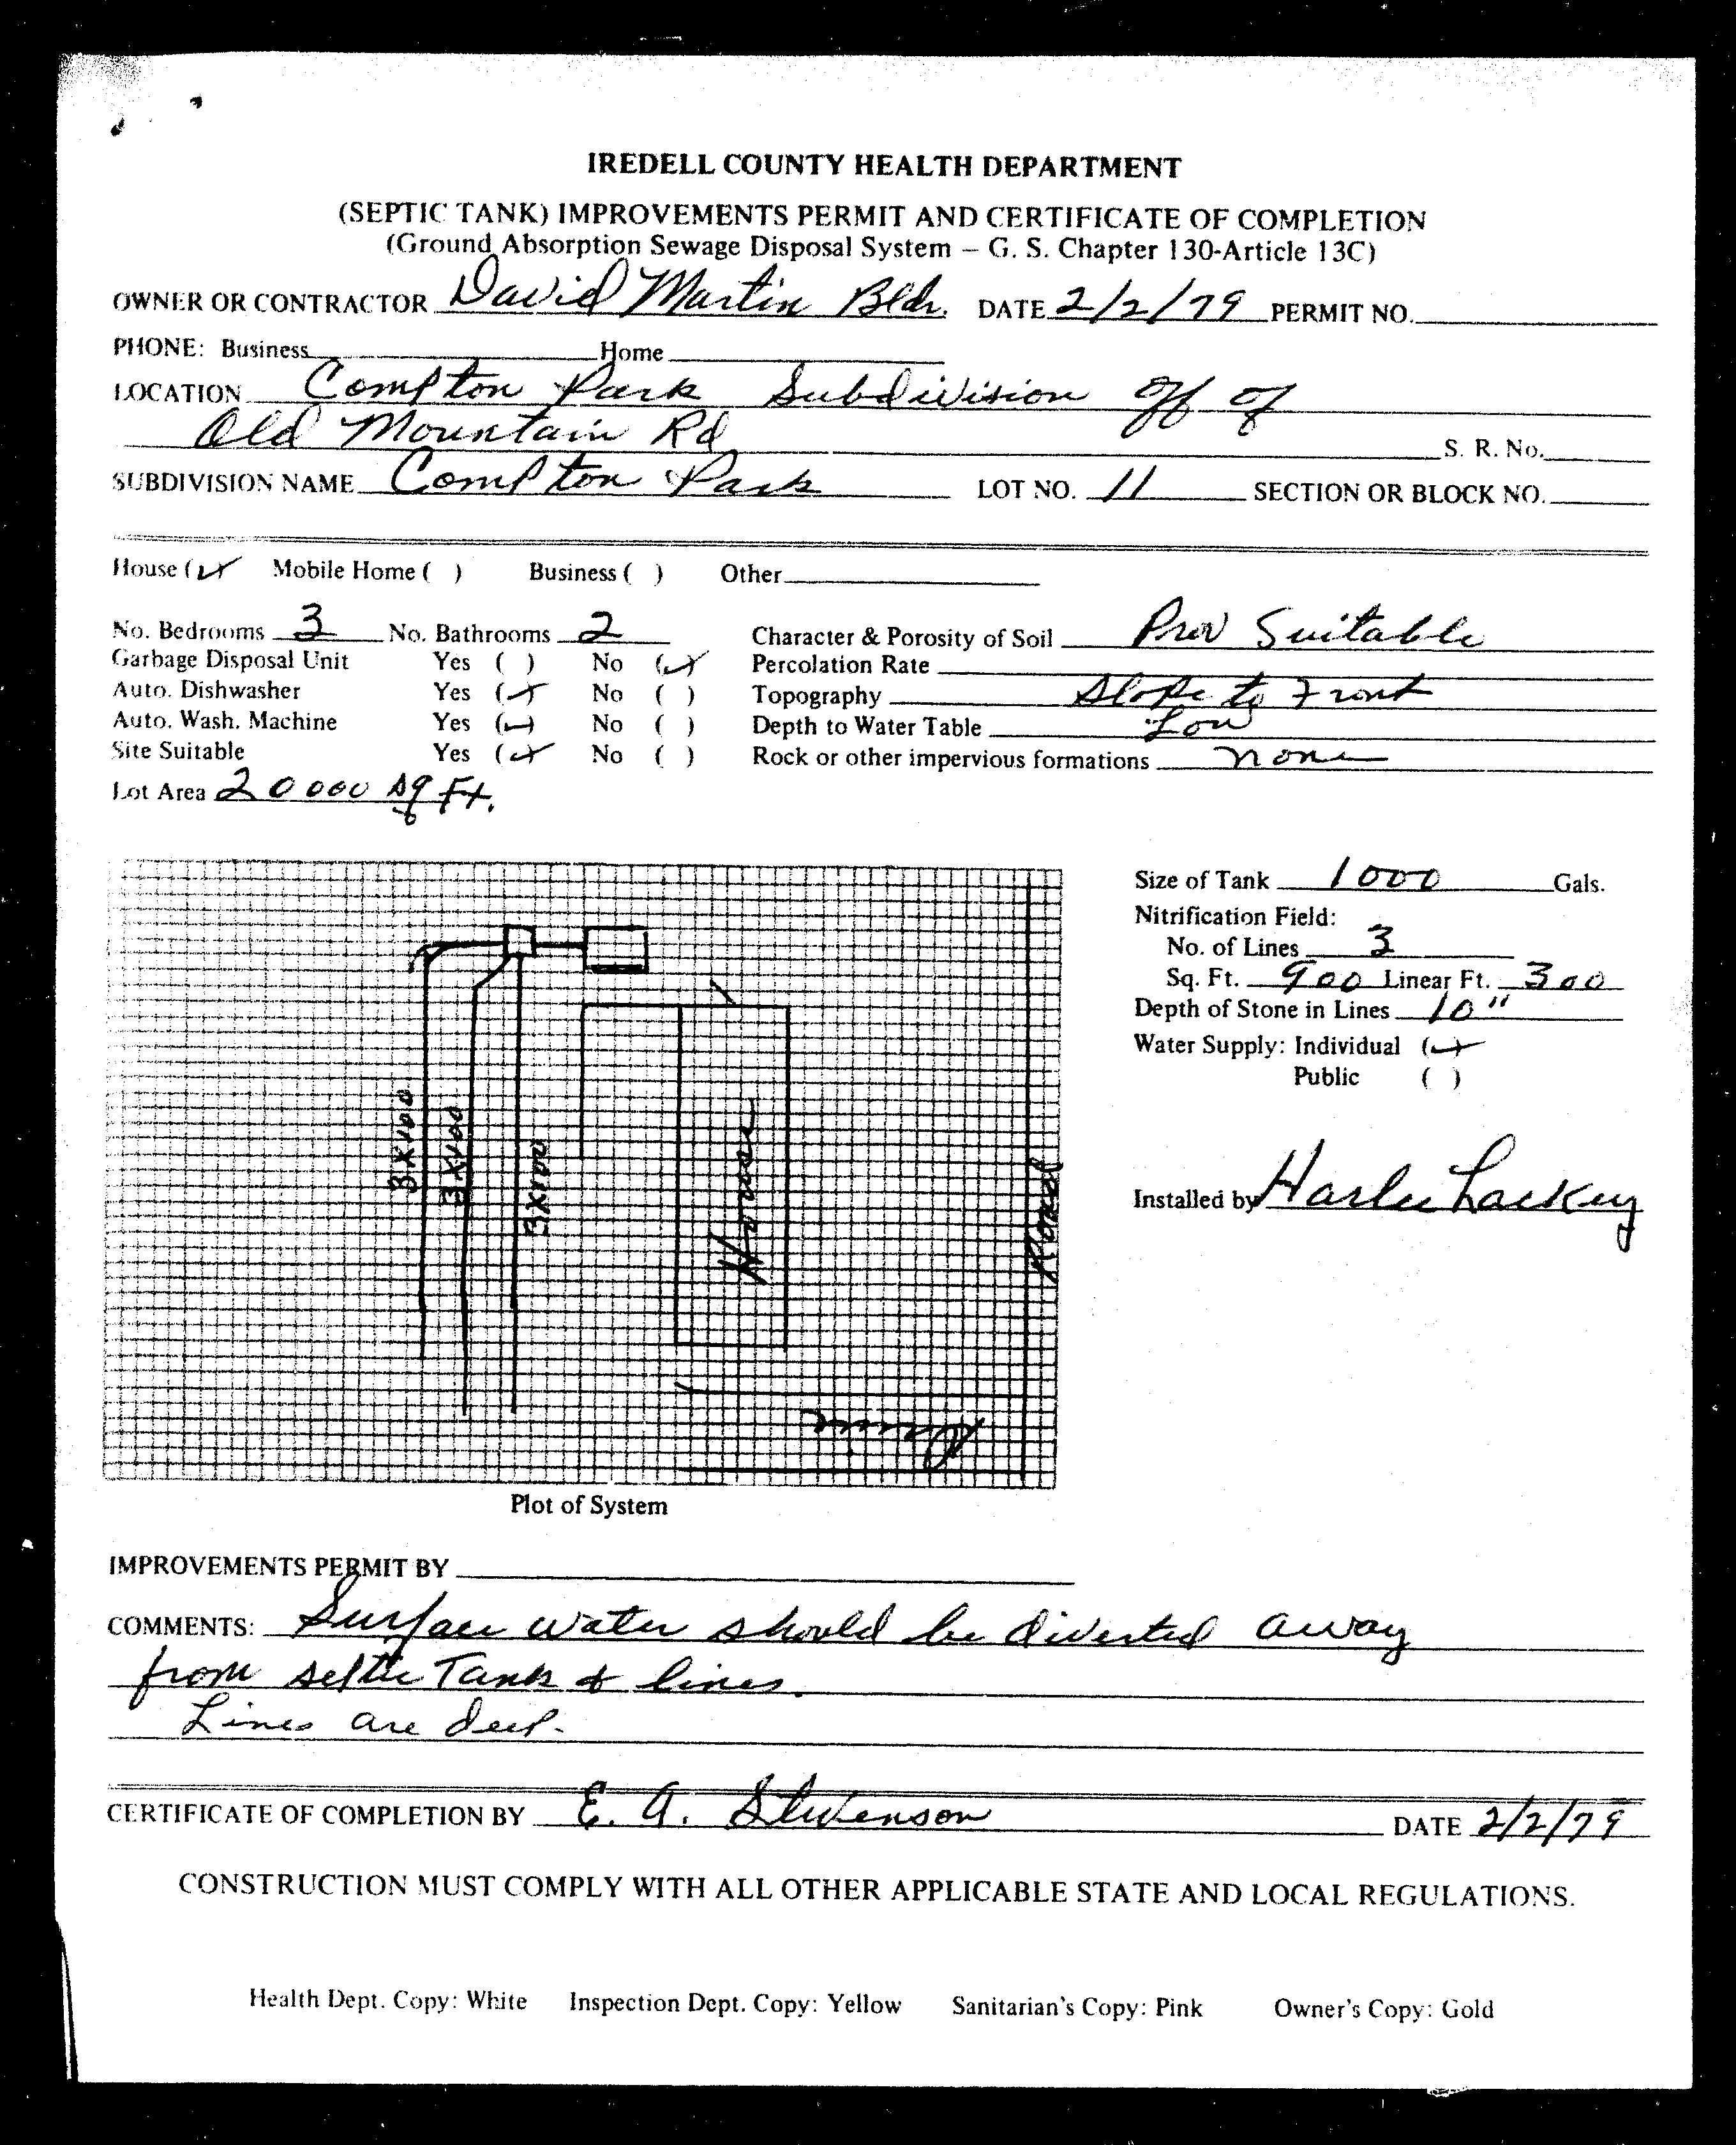 IREDELL COUNTY HEALTH DEPARTMENT
(SEPTIC TANK) IMPROVEMENTS PERMIT AND CERTIFICATE OF COMPLETION
(Ground Absorption Sewage Disposal System – G. S. Chapter 130-Article 13C)
OWNER OR CONTRACTOR David Martin Bldr. DATE 2/2/79 PERMIT NO.
PHONE: Business Home
LOCATION Compton Park Subdivision off of
Old Mountain Rd S. R. No.
SUBDIVISION NAME Compton Park LOT NO. 11 SECTION OR BLOCK NO.
House (✓) Mobile Home ( ) Business ( ) Other
No. Bedrooms 3 No. Bathrooms 2 Character & Porosity of Soil Prov Suitable
Garbage Disposal Unit Yes ( ) No (✓) Percolation Rate
Auto. Dishwasher Yes (✓) No ( ) Topography Slope to Front
Auto. Wash. Machine Yes (✓) No ( ) Depth to Water Table Low
Site Suitable Yes (✓) No ( ) Rock or other impervious formations none
Lot Area 20000 sq Ft.
Size of Tank 1000 Gals.
Nitrification Field:
No. of Lines 3
Sq. Ft. 900 Linear Ft. 300
Depth of Stone in Lines 10"
Water Supply: Individual (✓)
Public ( )
3X100
3X100
3X100
House
Road
Drive
Installed by Harlee Lackey
Plot of System
IMPROVEMENTS PERMIT BY
COMMENTS: Surface water should be diverted away
from septic Tank & lines.
Lines are deep.
CERTIFICATE OF COMPLETION BY E. A. Stevenson DATE 2/2/79
CONSTRUCTION MUST COMPLY WITH ALL OTHER APPLICABLE STATE AND LOCAL REGULATIONS.
Health Dept. Copy: White Inspection Dept. Copy: Yellow Sanitarian's Copy: Pink Owner's Copy: Gold